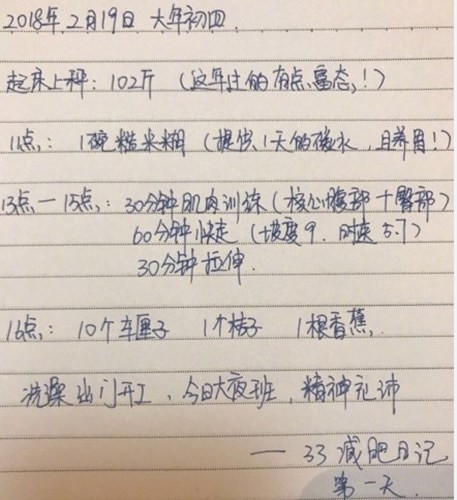 2018年2月19日 大年初四.
起床上秤：102斤（这年过的有点富态！）
11点：1碗糙米糊（提供1天的碳水，且养胃！）
13点—15点：30分钟肌肉训练（核心腹部+臀部）
60分钟快走（坡度9.时速5.7）
30分钟拉伸.
16点：10个车厘子 1个桔子 1根香蕉.
洗澡出门开工，今日大夜班，精神充沛
——33减肥日记
第一天.